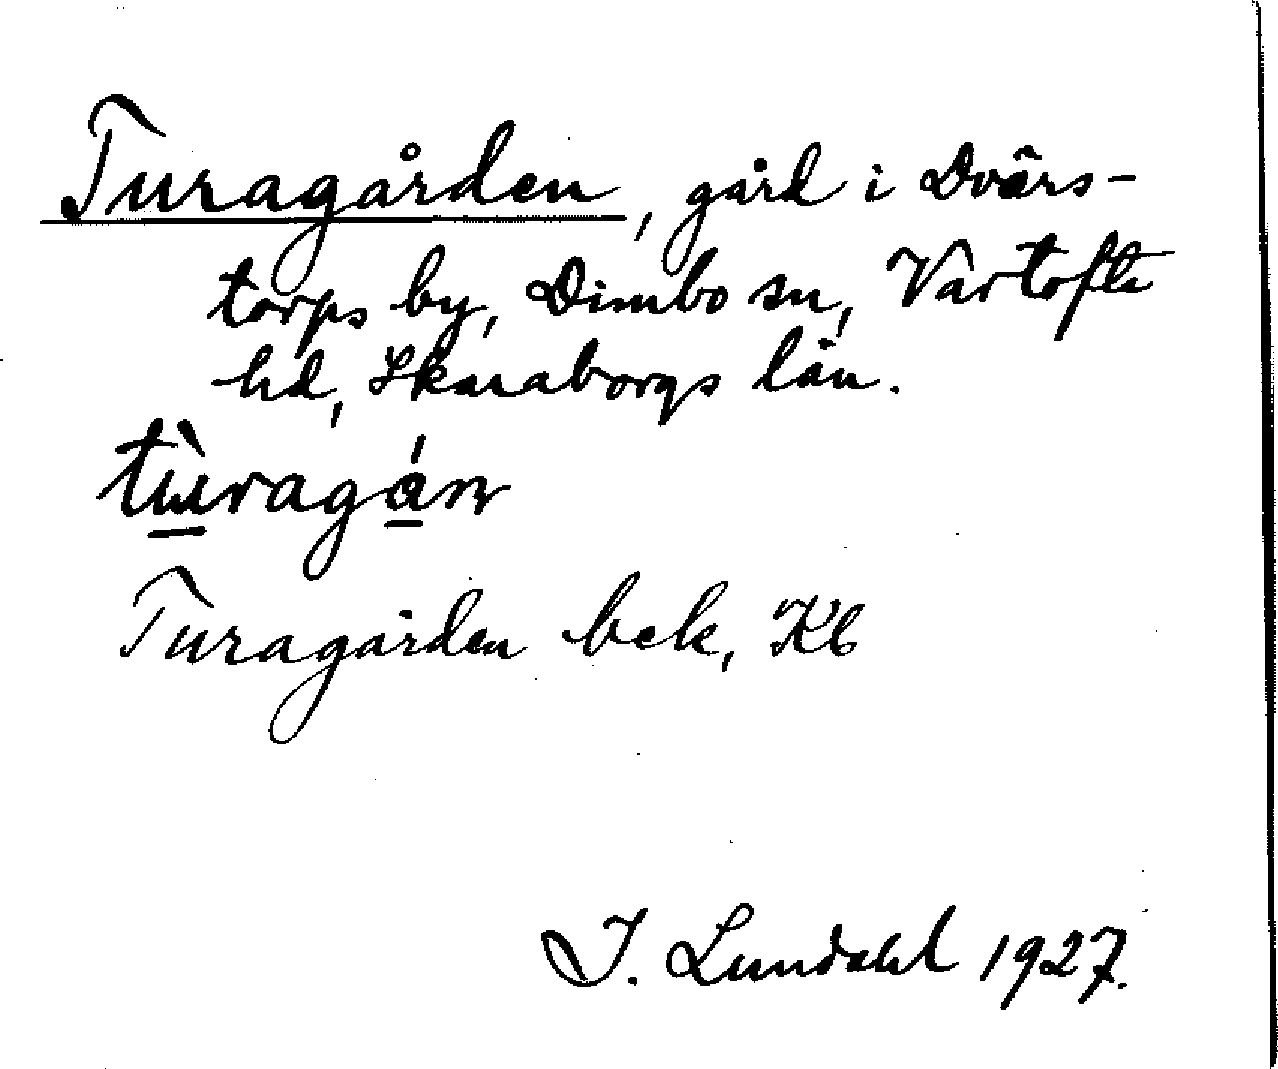 Turagården, gård i Dvärs-
torps by, Dimbo sn, Vartofta
hd, Skaraborgs län.
tùragán
Turagården bek, Kb
I. Lundahl 1927.